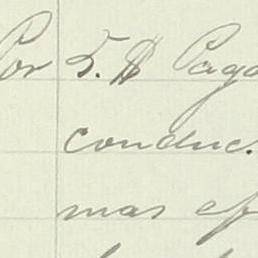 Por 5. $ Paga
conduc
mas ef